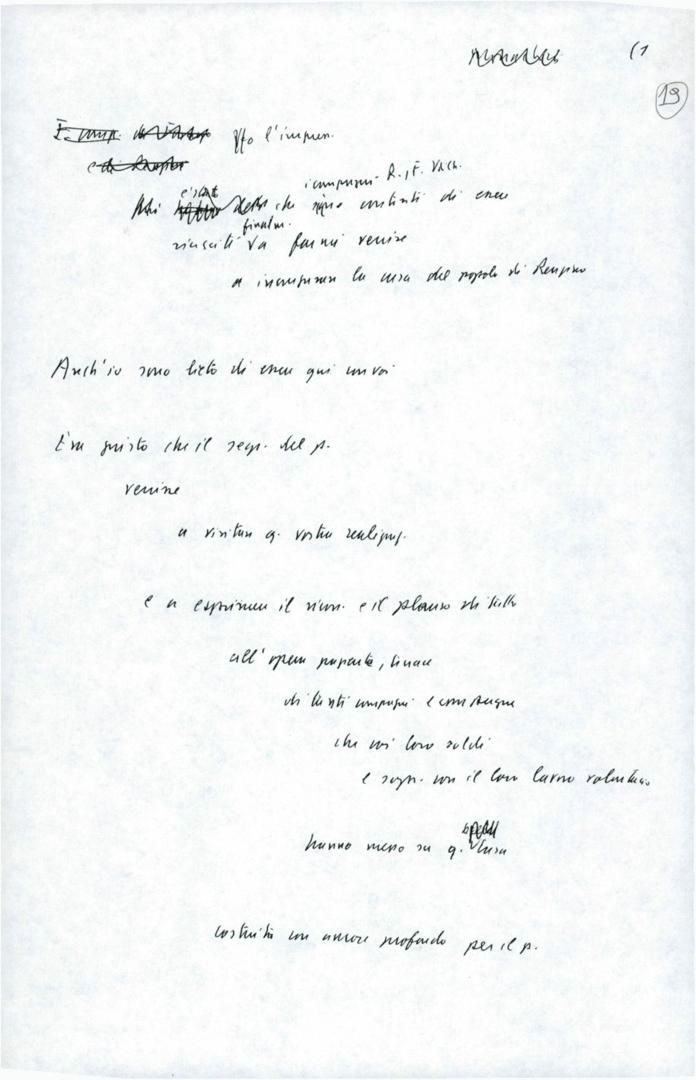 (1
19
l'impegn.
compagni R., F. Vacc.
è stato
che siano contenti di essere
finalm.
riusciti a farmi venire
a inaugurare la casa del popolo di
Anch'io sono lieto di essere qui con voi
Era giusto che il segr. del p.
venisse
a visitare q. vostra realizzaz.
e a esprimere il ricon. e il plauso di tutto
all'opera paziente, tenace
di tanti compagni e compagne
che coi loro soldi
e sopr. con il loro lavoro volontario
hanno messo su q. bella Casa
costruita con amore profondo per il p.